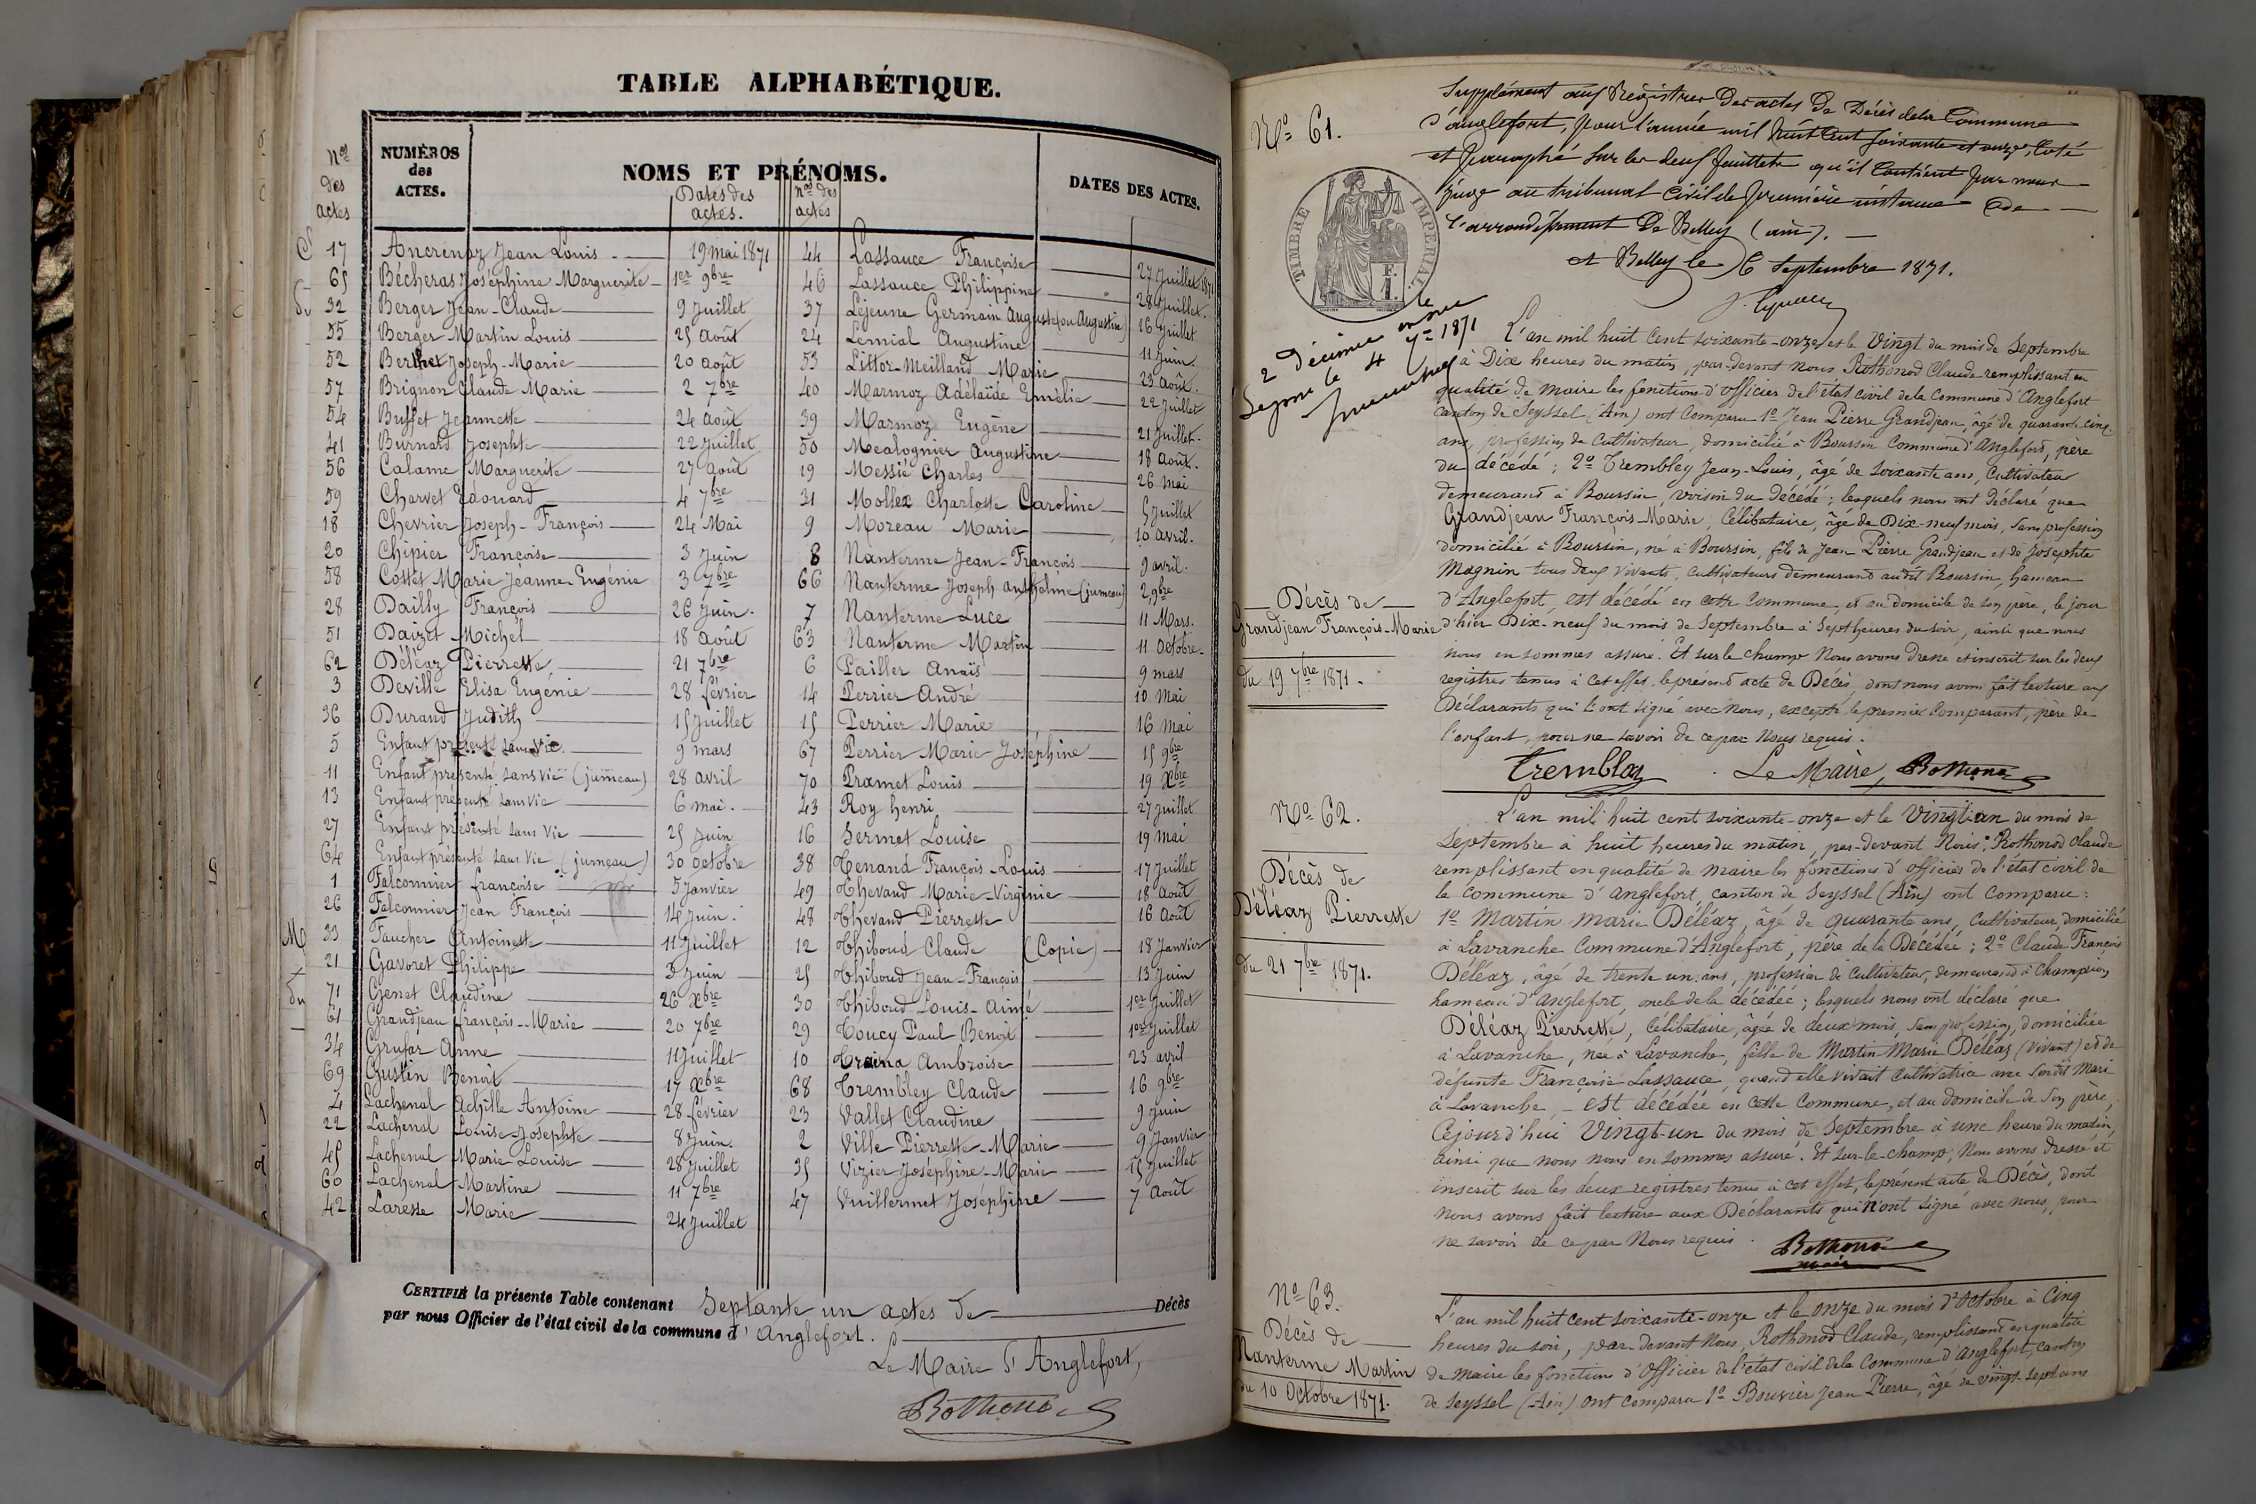 TABLE ALPHABÉTIQUE.
Nos des actes
NUMÉROS des ACTES.
NOMS ET PRÉNOMS.
Dates des actes.
nos des actes
DATES DES ACTES.
17 Ancrenaz Jean Louis 19 Mai 1871
65 Bécheras Joséphine Marguerite 1er 9bre
32 Berger Jean-Claude 9 Juillet
55 Berger Martin Louis 25 Août
52 Berthet Joseph-Marie 20 Août
57 Brignon Claude Marie 2 7bre
54 Buffet Jeannette 24 Août
41 Burnard Josephte 22 Juillet
56 Calame Marguerite 27 Août
59 Charvet Edouard 4 7bre
18 Chevrier Joseph-François 24 Mai
20 Chipier Françoise 3 Juin
58 Cottet Marie Jeanne-Eugénie 3 7bre
28 Dailly François 26 Juin.
51 Daizet Michel 18 Août
62 Déléaz Pierrette 21 7bre
3 Deville Elisa Eugénie 28 février
36 Durand Judith 15 Juillet
5 Enfant présenté sans vie. 9 mars
11 Enfant présenté sans vie (jumeau) 28 avril
13 Enfant présenté sans vie 6 mai.
27 Enfant présenté sans vie 25 Juin
64 Enfant présenté sans vie (jumeau) 30 octobre
1 Falconnier françoise 5 Janvier
26 Falconnier Jean François 14 Juin.
33 Faucher Antoinette 11 Juillet
21 Gavoret Philippe 3 Juin
71 Genet Claudine 26 Xbre
61 Grandjean françois-Marie 20 7bre
34 Grufaz Anne 11 Juillet
69 Gustin Benoit 17 Xbre
4 Lachenal Achille Antoine 28 février
22 Lachenal Louise-Josephte 8 Juin.
45 Lachenal Marie Louise 28 Juillet
60 Lachenal Martine 11 7bre
42 Laresse Marie 24 Juillet
44 Lassauce Françoise 27 Juillet 1871
46 Lassauce Philippine 28 Juillet.
37 Lejeune Germain Auguste (ou Augustin) 16 Juillet
24 Lemial Augustine 11 Juin.
53 Littoz-Meilland Marie 23 Août.
40 Marmoz Adélaïde Emélie 22 Juillet
39 Marmoz Eugène 21 Juillet.
50 Mealognier Augustine 18 Août.
19 Messié Charles 26 Mai
31 Mollex Charlotte Caroline 5 Juillet
9 Mozeau Marie 10 avril.
8 Nanterme Jean-François 9 avril.
66 Nanterme Joseph anthelme (jumeau) 2 9bre
7 Nanterme Luce 11 Mars.
63 Nanterme Martin 11 Octobre.
6 Pailler Anaïs 9 mars
14 Perrier André 10 Mai
15 Perrier Marie 16 Mai
67 Perrier Marie Joséphine 15 9bre
70 Pramet Louis 19 Xbre
43 Roy henri 27 Juillet
16 Sermet Louise 19 Mai
38 Tenand François-Louis 17 Juillet
49 Thevand Marie-Virginie 18 Août
48 Thevand Pierrette 16 Août
12 Thiboud Claude (Copie) 18 Janvier
25 Thiboud Jean-François 13 Juin
30 Thiboud Louis-Aimé 1er Juillet
29 Toucy Paul Benoit 1er Juillet
10 Traina Ambroise 23 avril
68 Trembley Claude 16 9bre
23 Vallet Claudine 9 Juin
2 Ville Pierrette-Marie 9 Janvier
35 Vizier Joséphine-Marie 15 Juillet
47 Vuillermet Joséphine 7 Août
CERTIFIÉ la présente Table contenant Septante un actes de Décès
par nous Officier de l'état civil de la commune d'Anglefort.
Le Maire d'Anglefort,
Rothonod
No 61.
Supplément aux Registres des actes de Décès de la Commune
d'anglefort, pour l'année mil huit cent soixante et onze, Coté
et Paraphé sur les deux feuillets qu'il Contient par nous
Juge au tribunal Civil de Première instance de
l'arrondissement De Belley (ain).
à Belley le 6 Septembre 1871.
TIMBRE IMPÉRIAL
F. 1.
2 Décimes en sus
Seyssel le 4 7re 1871
L'an mil huit cent soixante-onze et le vingt du mois de Septembre
à Dix heures du matin, par-devant nous Rothonod Claude remplissant en
qualité de maire les fonctions d'officier de l'état civil de la Commune d'Anglefort
canton de Seyssel (Ain) ont Comparu 1o Jean Pierre Grandjean, âgé de quarante-cinq
ans, profession de Cultivateur, domicilié à Boursin Commune d'Anglefort, père
du décédé ; 2o Trembley Jean-Louis, âgé de soixante ans, Cultivateur
demeurand à Boursin, voisin du Décédé ; lesquels nous ont Déclaré que
Grandjean François-Marie, Célibataire, âgé de Dix-neuf mois, sans profession
domicilié à Boursin, né à Boursin, fils de Jean Pierre Grandjean et de Josephte
Magnin tous deux vivants, cultivateurs demeurand audit Boursin, hameau
d'Anglefort, est décédé en cette Commune, et au domicile de son père, le jour
d'hier Dix-neuf du mois de Septembre à Sept heures du soir, ainsi que nous
nous en sommes assuré. Et sur le champ Nous avons Dressé et inscrit sur les deux
registres tenus à cet effet, le présent acte de Décès, dont nous avons fait lecture aux
Déclarants qui l'ont signé avec nous, excepté le premier Comparant, père de
l'enfant, pour ne savoir de ce par Nous requis.
Décès de
Grandjean François-Marie
du 19 7bre 1871.
Trembley Le Maire, Rothonod
No 62.
Décès de
Déléaz Pierrette
du 21 7bre 1871.
L'an mil huit cent soixante-onze et le Vingt-un du mois de
Septembre à huit heures du matin, par-devant Nous, Rothonod Claude
remplissant en qualité de maire les fonctions d'officier de l'état civil de
la Commune d'Anglefort, canton de Seyssel (Ain) ont Comparu :
1o Martin Marie Déléaz, âgé de quarante ans, Cultivateur, domicilié
à Lavanche Commune d'Anglefort, père de la Décédée ; 2o Claude François
Déléaz, âgé de trente un ans, profession de Cultivateur, demeurand à Champion
hameau d'Anglefort, oncle de la décédée ; lesquels nous ont déclaré que
Déléaz Pierrette, Célibataire, âgée de deux mois, sans profession, domiciliée
à Lavanche, née à Lavanche, fille de Martin Marie Déléaz (vivant) et de
défunte Françoise Lassauce, quand elle vivait Cultivatrice avec Sondit Mari
à Lavanche, - est décédée en cette Commune, et au domicile de son père,
Cejourd'hui Vingt-un du mois de Septembre à une heure du matin,
ainsi que nous nous en sommes assuré. Et sur-le-champ, Nous avons dressé et
inscrit sur les deux registres tenus à cet effet, le présent acte de Décès, dont
Nous avons fait lecture aux Déclarants qui n'ont signé avec nous, pour
ne savoir de ce par Nous requis.
Rothonod
maire
No 63.
Décès de
Nanterme Martin
du 10 Octobre 1871.
L'an mil huit cent soixante-onze et le onze du mois d'Octobre à Cinq
heures du soir, par-devant Nous, Rothonod Claude, remplissant en qualité
de Maire les fonctions d'Officier de l'état civil de la Commune d'Anglefort, canton
de Seyssel (Ain) ont comparu 1o Bouvier Jean Pierre, âgé de vingt-sept ans